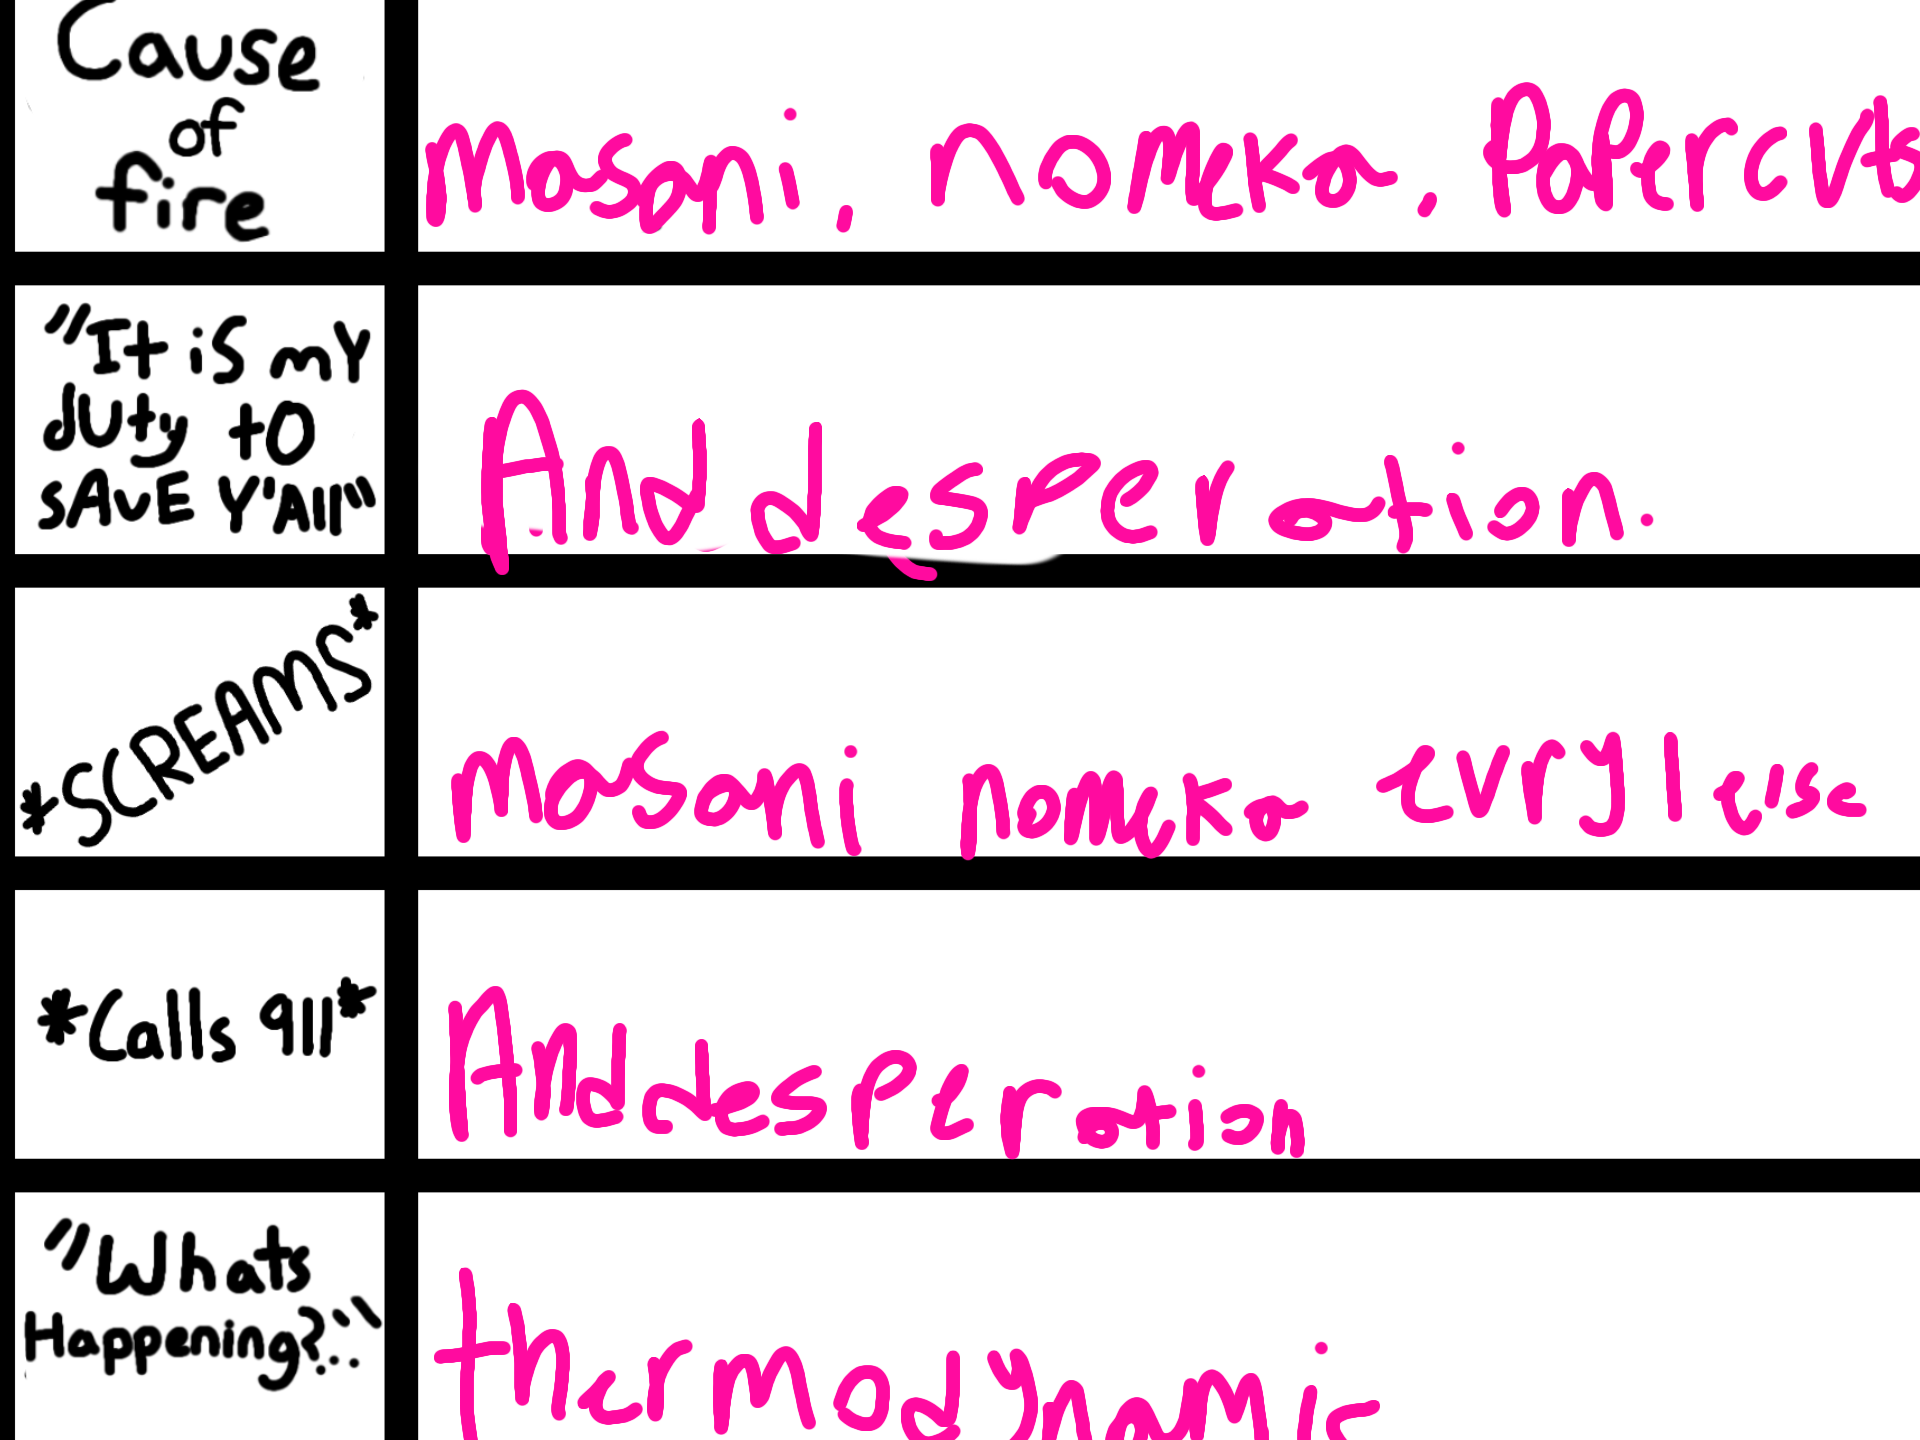 Cause
of
fire
masani, nomeka, Papercuts
"It is my
duty to
SAvE Y'All"
And desperation.
*SCREAMS*
masani nomeka evry1 else
*Calls 911*
And desperation
"Whats
Happening?.."
thermodynamic